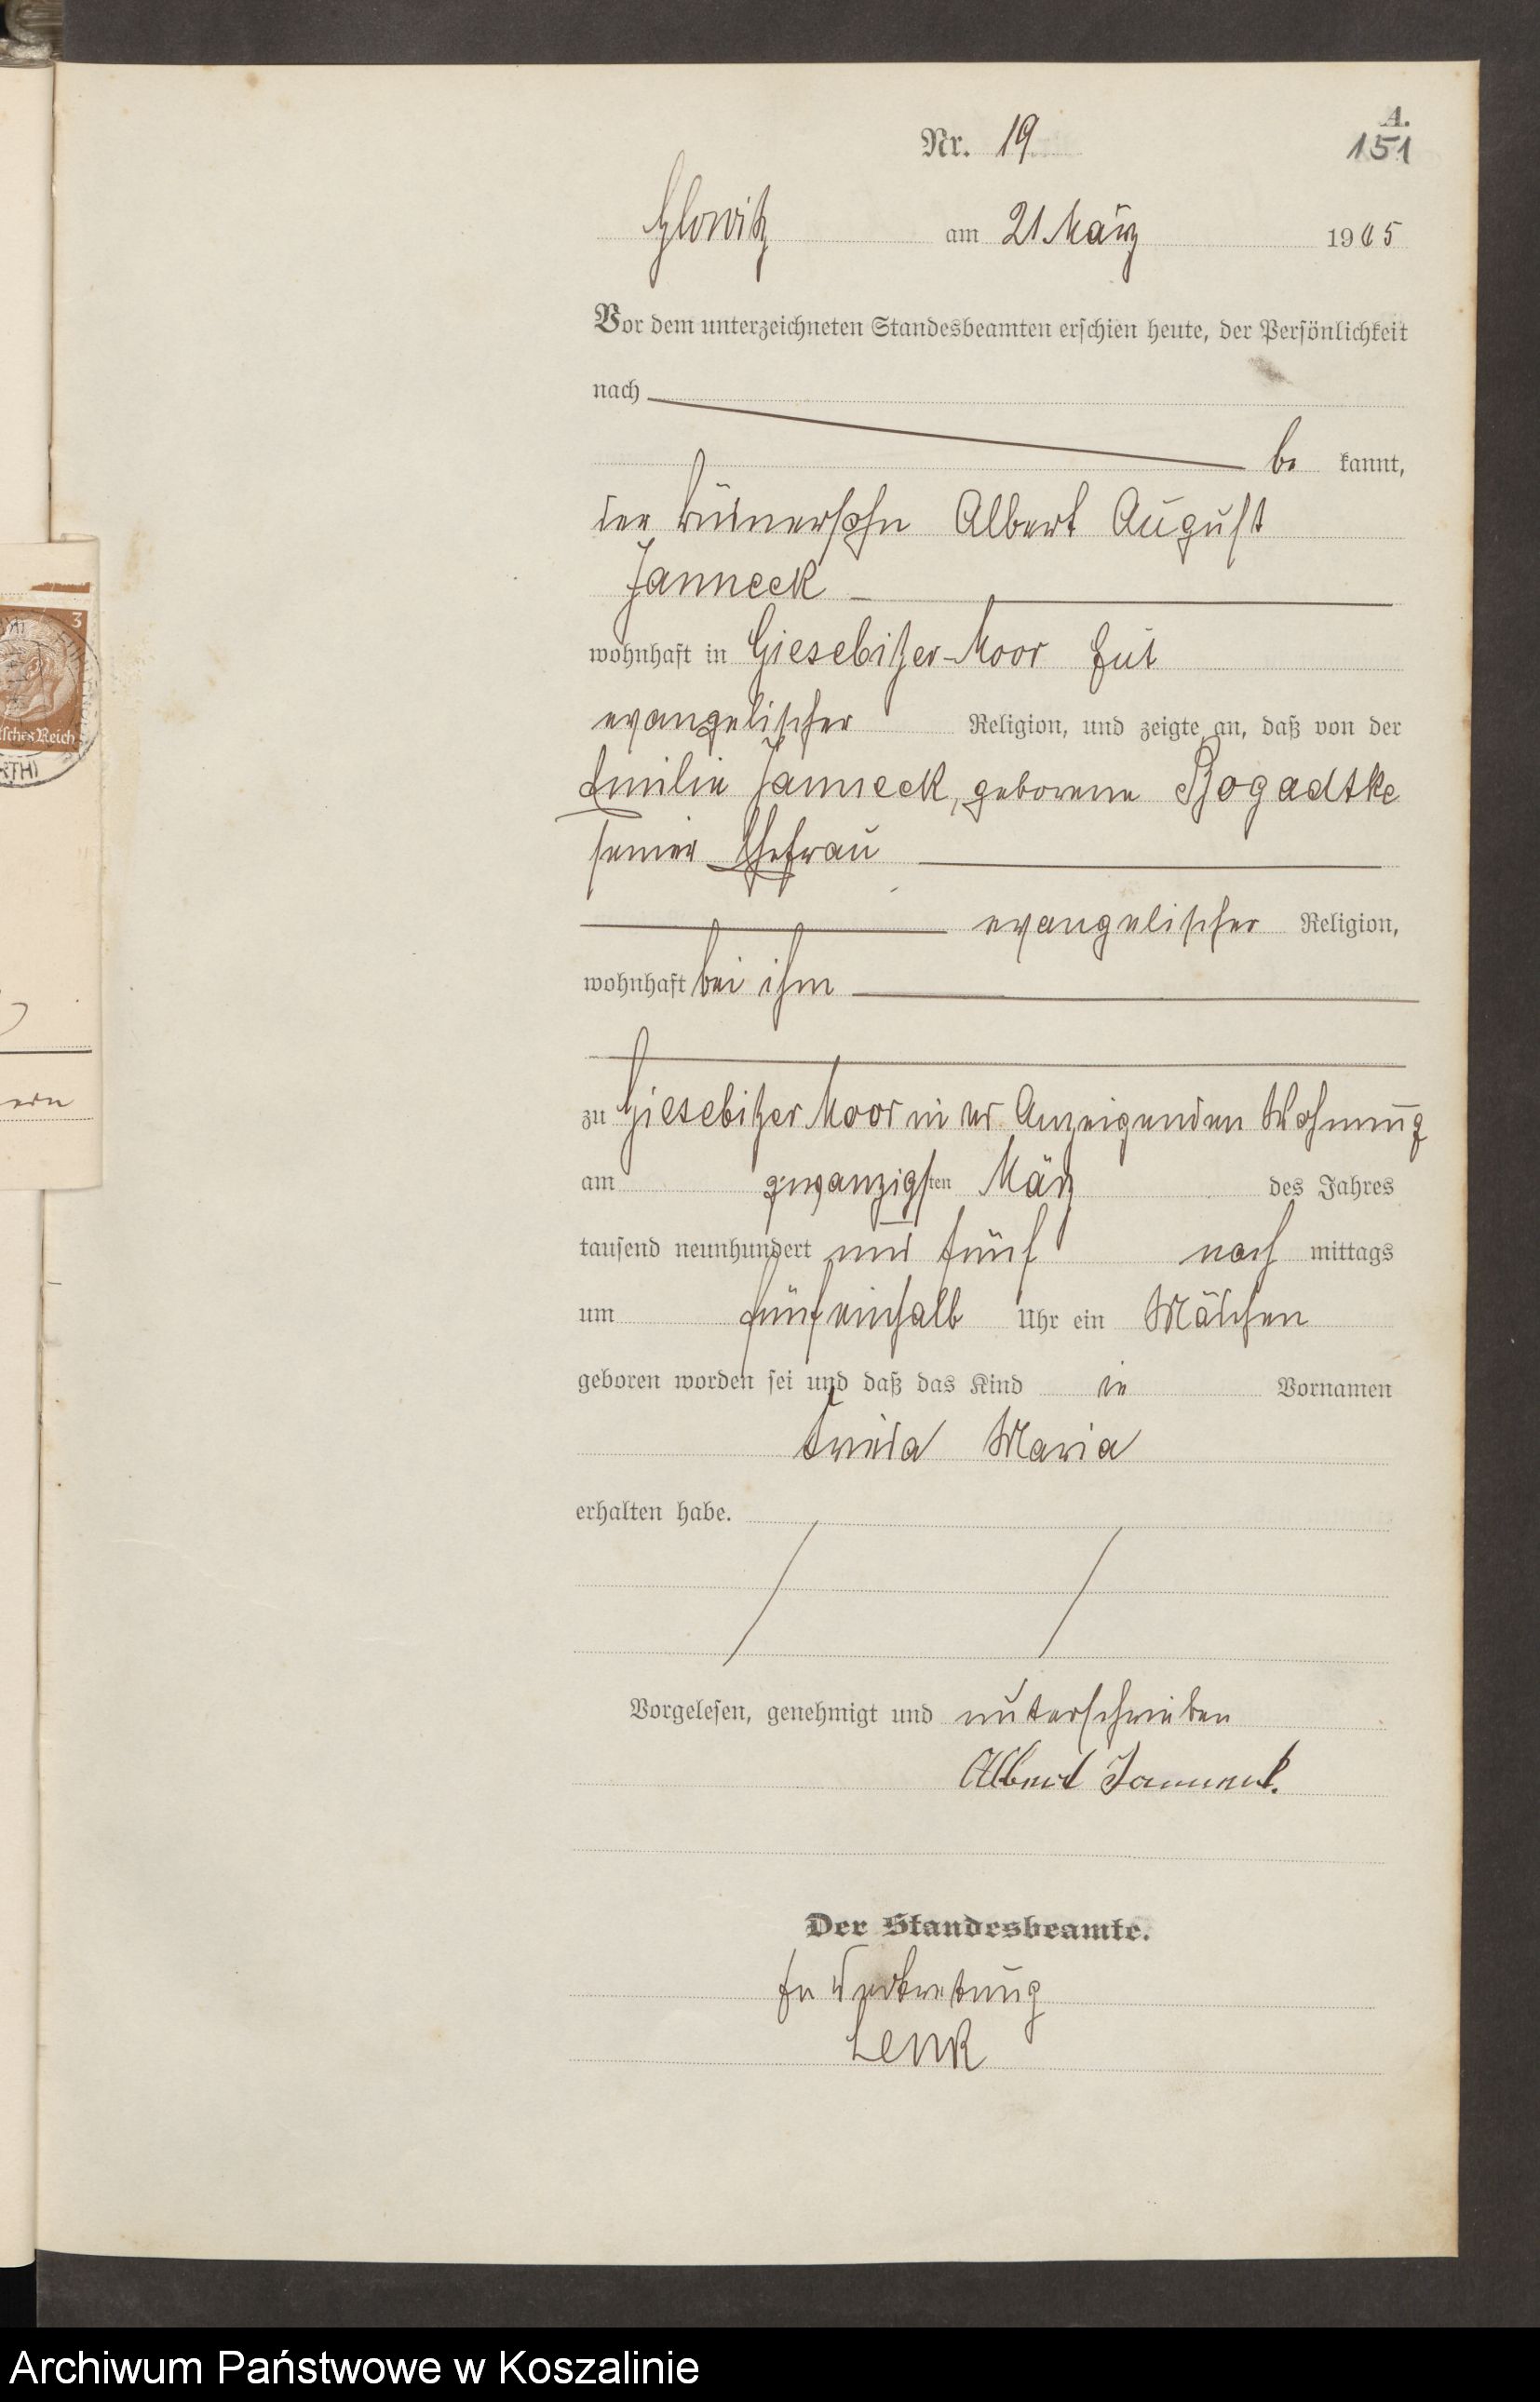 A.
Nr. 19
151
Glowitz am 21 März 1905
Vor dem unterzeichneten Standesbeamten erschien heute, der Persönlichkeit
nach
be kannt,
der Büdnersohn Albert August
Janneck
wohnhaft in Giesebitzer-Moor
evangelischer Religion, und zeigte an, daß von der
Emilie Janneck, geborene Pogadtke
seiner Ehefrau
evangelischer Religion,
wohnhaft bei ihm
zu Giesebitzer Moor in der Anzeigenden Wohnung
am zwanzigsten März des Jahres
tausend neunhundert und fünf nach mittags
um fünfeinhalb Uhr ein Mädchen
geboren worden sei und daß das Kind die Vornamen
Frieda Maria
erhalten habe.
Vorgelesen, genehmigt und unterschrieben
Albert Janneck.
Der Standesbeamte.
In Vertretung
Lenk
3
sches Reich
Archiwum Państwowe w Koszalinie